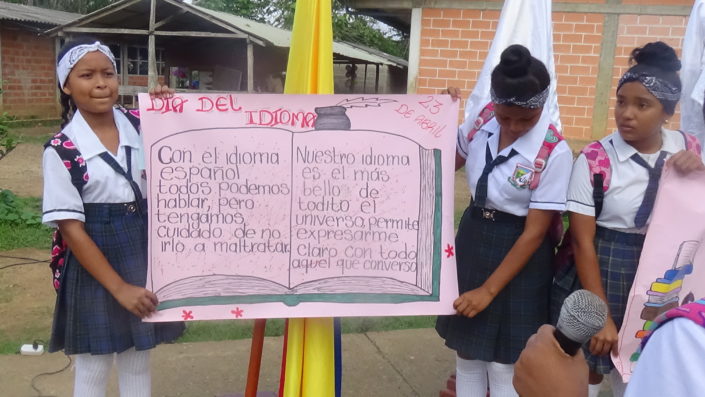 DIA DEL
IDIOMA
23
DE
ABRIL
Con el idioma
español
todos podemos
hablar, pero
tengamos
cuidado de no
irlo a maltratar.
Nuestro idioma
es el más
bello de
todito el
universo, permite
expresarme
claro con todo
aquel que converso